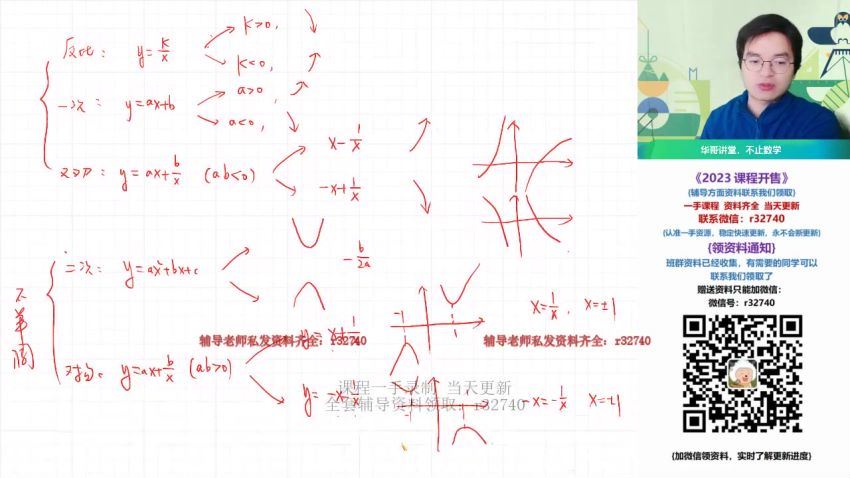 反比： y=k/x
k>0,
k<0,
一次： y=ax+b
a>0,
a<0,
双刀： y=ax+b/x (ab<0)
x-1/x
-x+1/x
二次： y=ax²+bx+c
-b/2a
不单调
对勾： y=ax+b/x (ab>0)
y=x+1/x
-1
1
x=1/x, x=±1
y=-x-1/x
-1
1
-x=-1/x x=±1
辅导老师私发资料齐全：r32740
辅导老师私发资料齐全：r32740
课程一手录制 当天更新
全套辅导资料领取：r32740
华哥讲堂，不止数学
《2023 课程开售》
(辅导方面资料联系我们领取)
一手课程 资料齐全 当天更新
联系微信：r32740
(认准一手资源，稳定快速更新，永不会断更新)
{领资料通知}
班群资料已经收集，有需要的同学可以
联系我们领取了
赠送资料只能加微信：
微信号：r32740
(加微信领资料，实时了解更新进度)